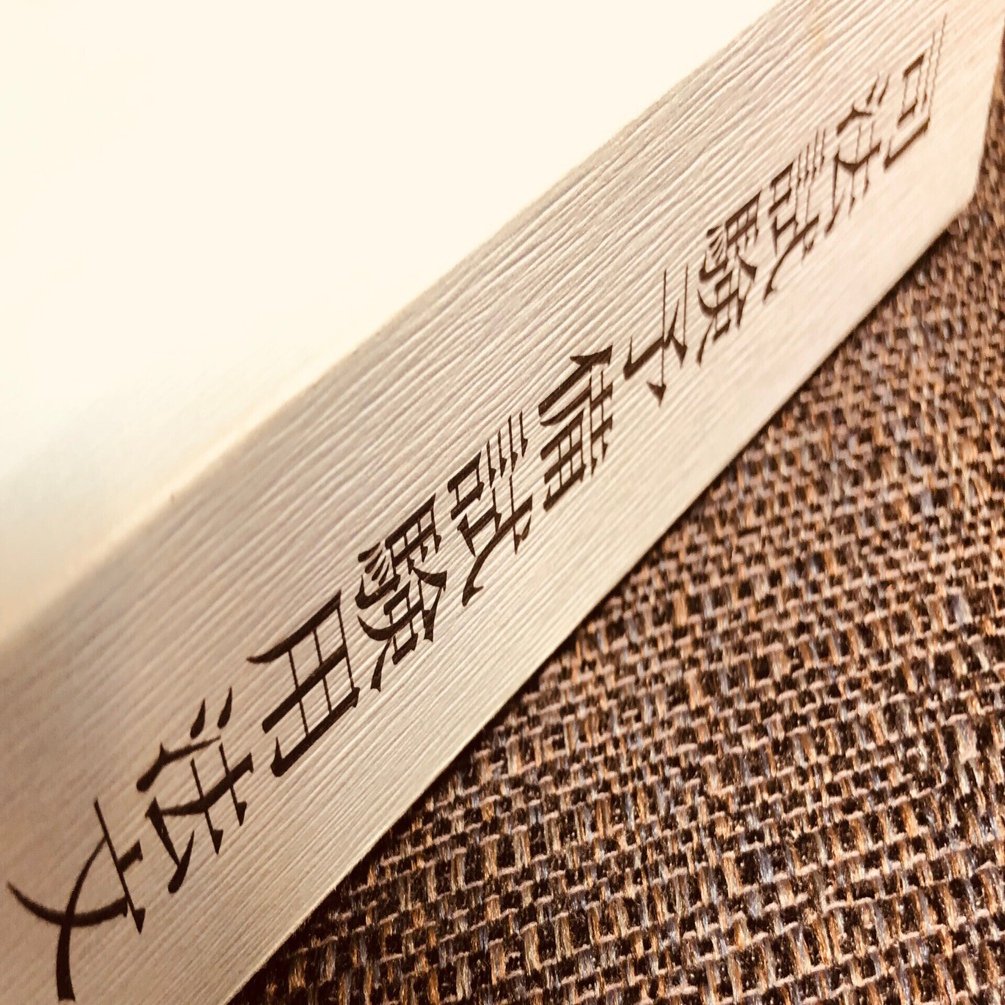 司法試験予備試験用法文